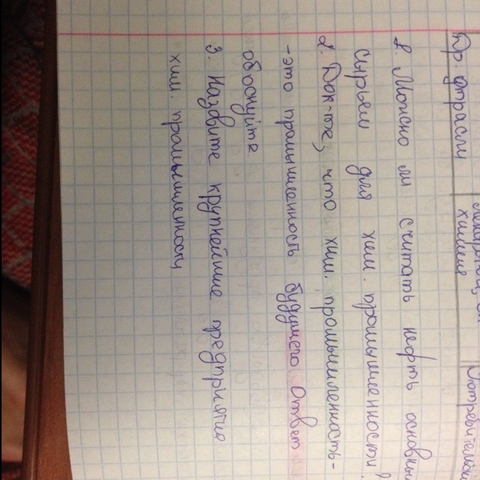 Др. отрасли
химие
Потребителі
1. Можно ли считать нефть основным
сырьем для хим. промышленности?
2. Док-те, что хим. промышленность-
-это промышленность будущего Ответ
обоснуйте
3. Назовите крупнейшие предприятия
хим. промышленности